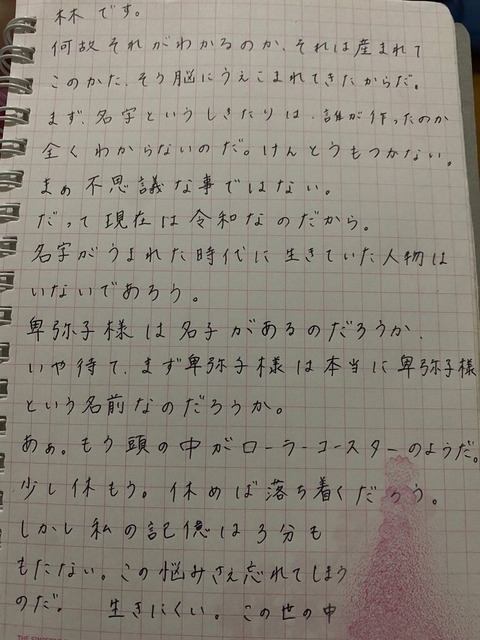 林です。
何故それがわかるのか、それは産まれて
このかた、そう脳にうえこまれてきたからだ。
まず、名字というしきたりは、誰が作ったのか
全くわからないのだ。けんとうもつかない。
まぁ不思議な事ではない。
だって現在は令和なのだから。
名字がうまれた時代に生きていた人物は
いないであろう。
卑弥子様は名子があるのだろうか、
いや待て、まず卑弥子様は本当に卑弥子様
という名前なのだろうか。
あぁ。もう頭の中がローラーコースターのようだ。
少し休もう。休めば落ち着くだろう。
しかし私の記億は3分も
もたない。この悩みさえ忘れてしまう
のだ。 生きにくい。この世の中